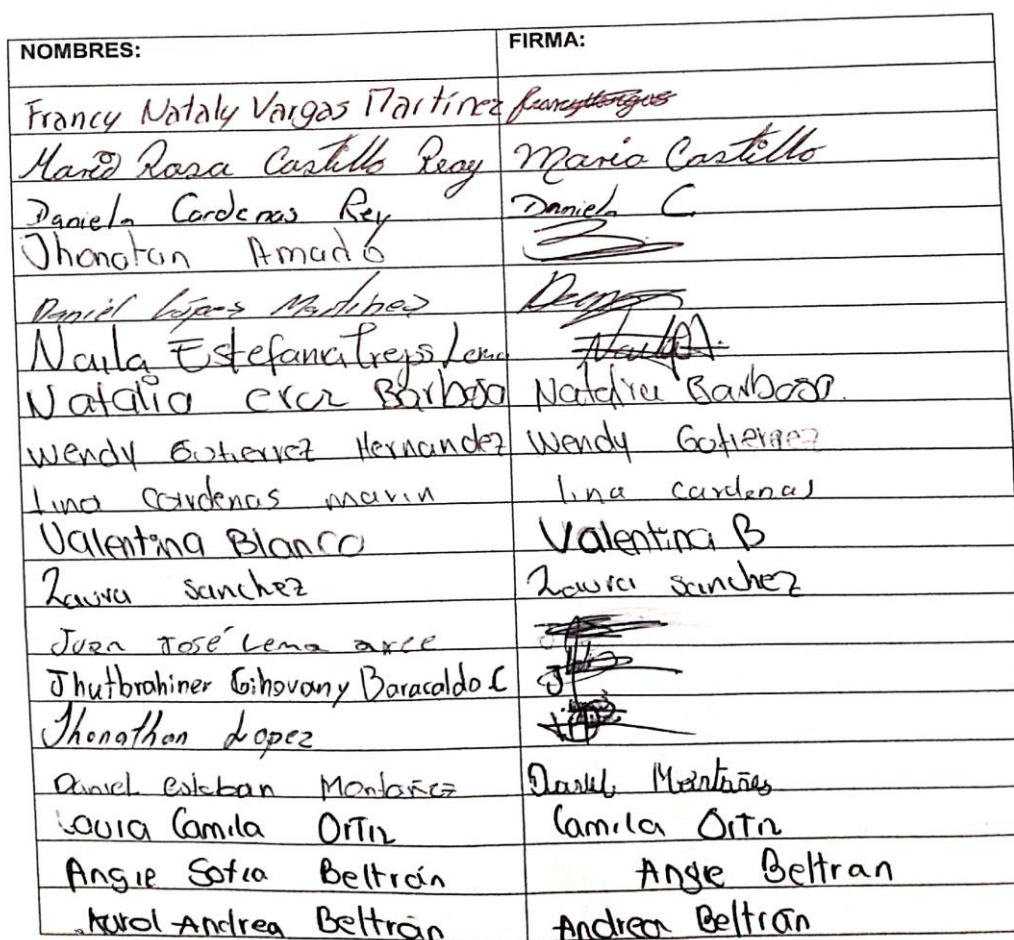 NOMBRES: FIRMA:
Francy Nataly Vargas Martinez francyvargas
Maria Rosa Castillo Reay Maria Castillo
Daniela Cardenas Rey Daniela C
Jhonatan Amado
Daniel López Martinez
Naila Estefania Lema
Natalia Barbosa Natalia Barbosa.
Wendy Gutierrez Hernandez Wendy Gutierrez
lina cardenas marin lina cardenas
Valentina Blanco Valentina B
Laura Sanchez Laura Sanchez
Juan José Lema arce
Jhutbrahiner Gihovany Baracaldo C
Jhonathan Lopez
Daniel esteban Montañez Daniel Montañes
Laura Camila Ortiz Camila Ortiz
Angie Sofia Beltrán Angie Beltran
Karol Andrea Beltrán Andrea Beltrán